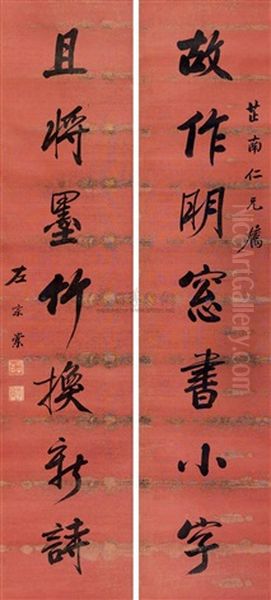 故作明窓書小字
芷南仁兄屬
且將墨竹換新詩
左宗棠